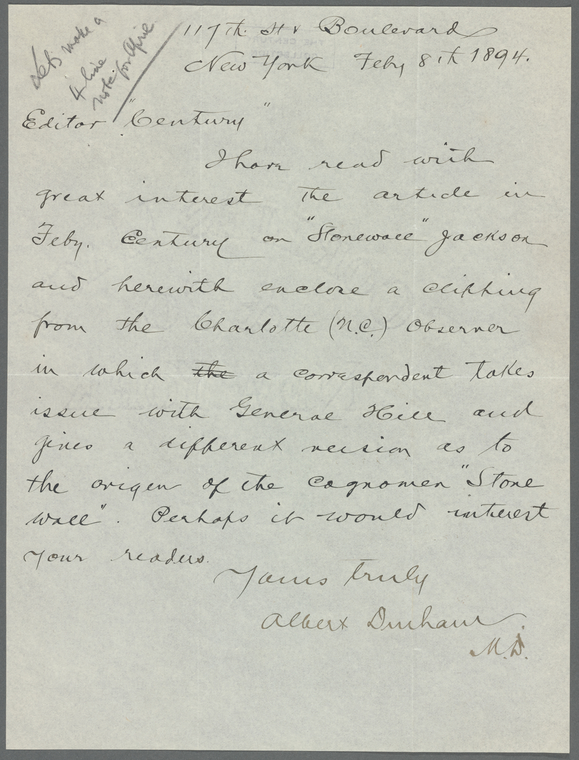 Let's make a
4-line
note for April
117th St & Boulevard
New York Feby 8th 1894.
Editor "Century"
I have read with
great interest the article in
Feby. Century on "Stonewall" Jackson
and herewith enclose a clipping
from the Charlotte (N.C.) Observer
in which the a correspondent takes
issue with General Hill and
gives a different version as to
the origin of the cognomen "Stone
wall". Perhaps it would interest
your readers.
Yours truly
Albert Durham
M.D.